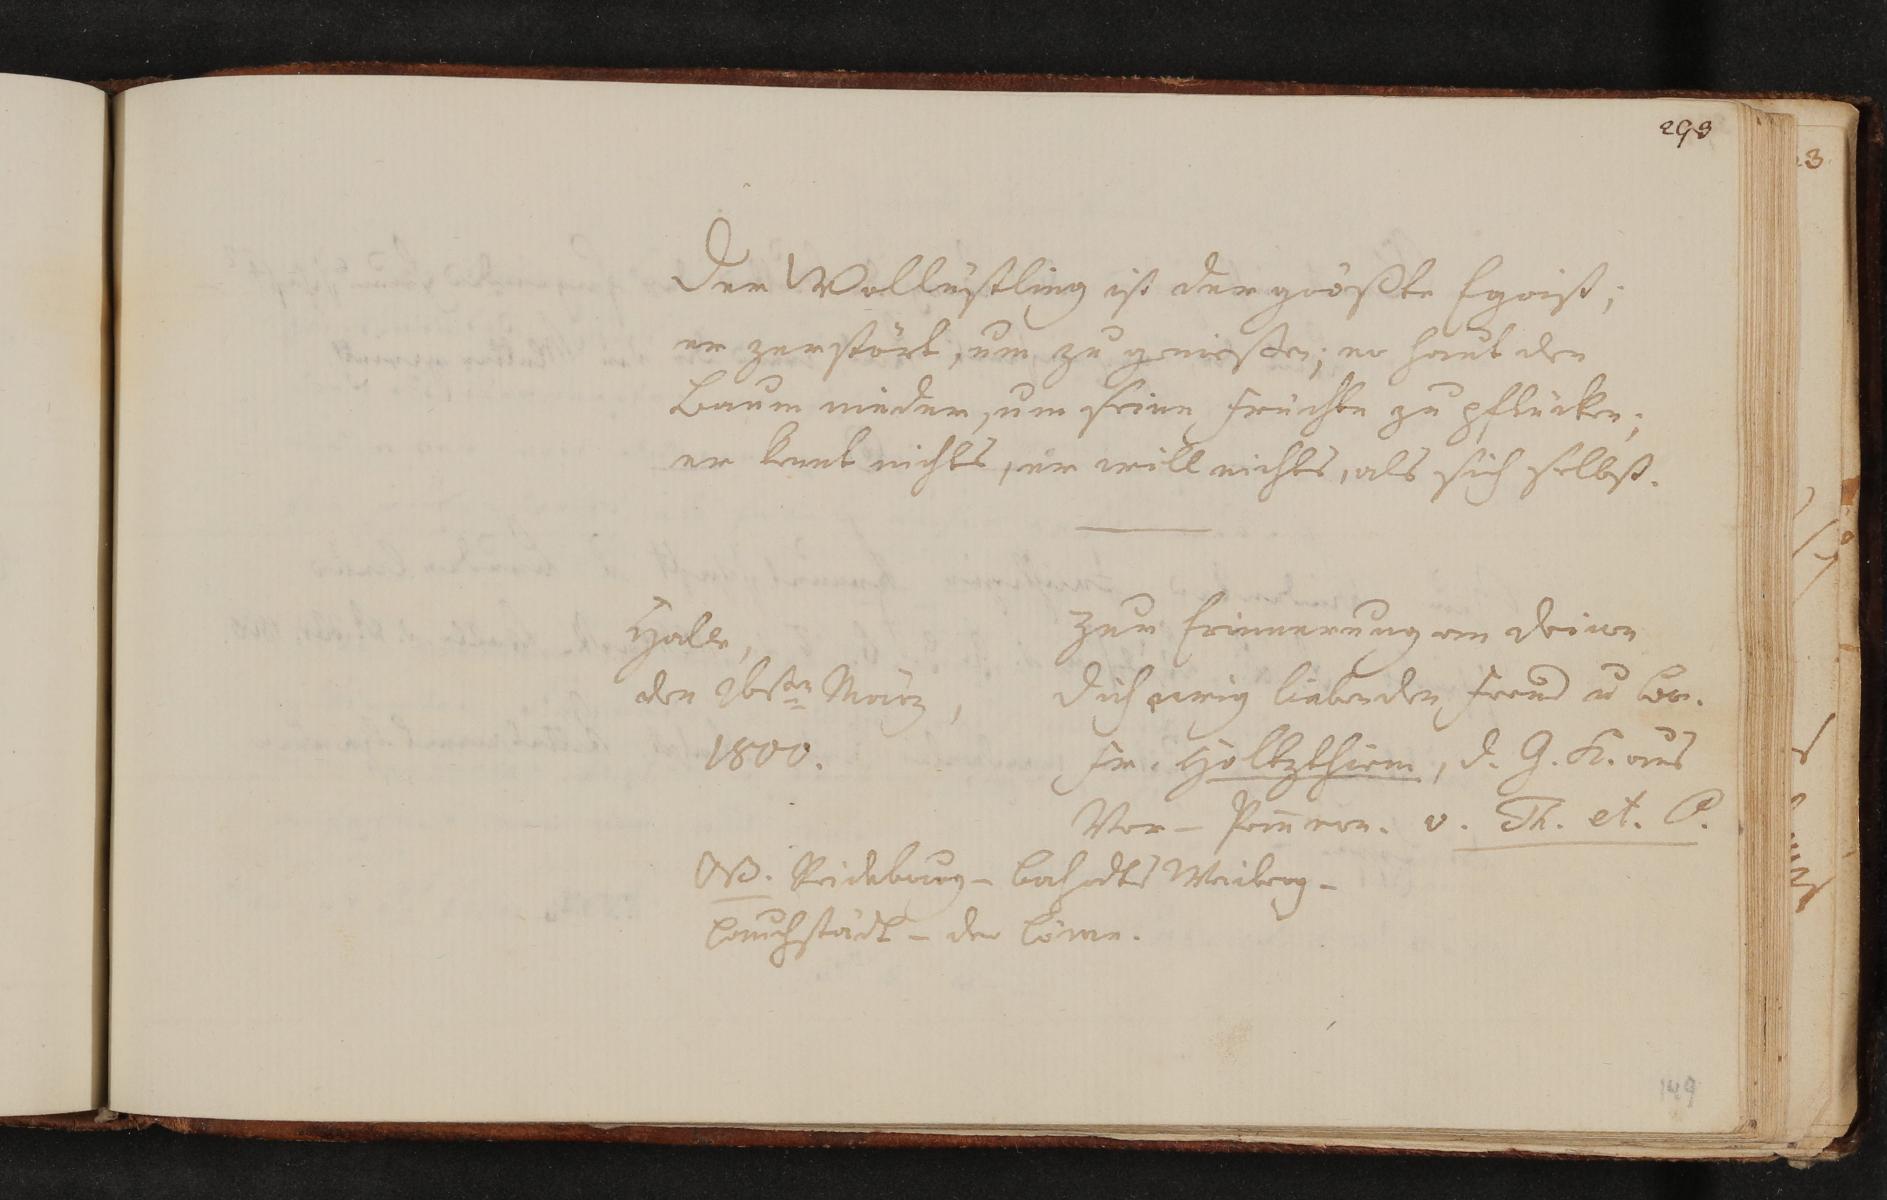 293
Der Wollüstling ist der größte Egoist;
er zerstört, um zu genießen; er haut den
Baum nieder, um seine Früchte zu pflücken;
er kennt nichts, er will nichts, als sich selbst.
Halle,
den 26sten März,
1800.
Zur Erinnerung an deinen
dich ewig liebenden Freund u Br.
Fr. Holtzthiem, d. G. K. aus
Vor-Pommern. v. Th. et. C.
NB. Reideburg - Bahrdts Weinberg -
Lauchstädt - der Löwe.
149